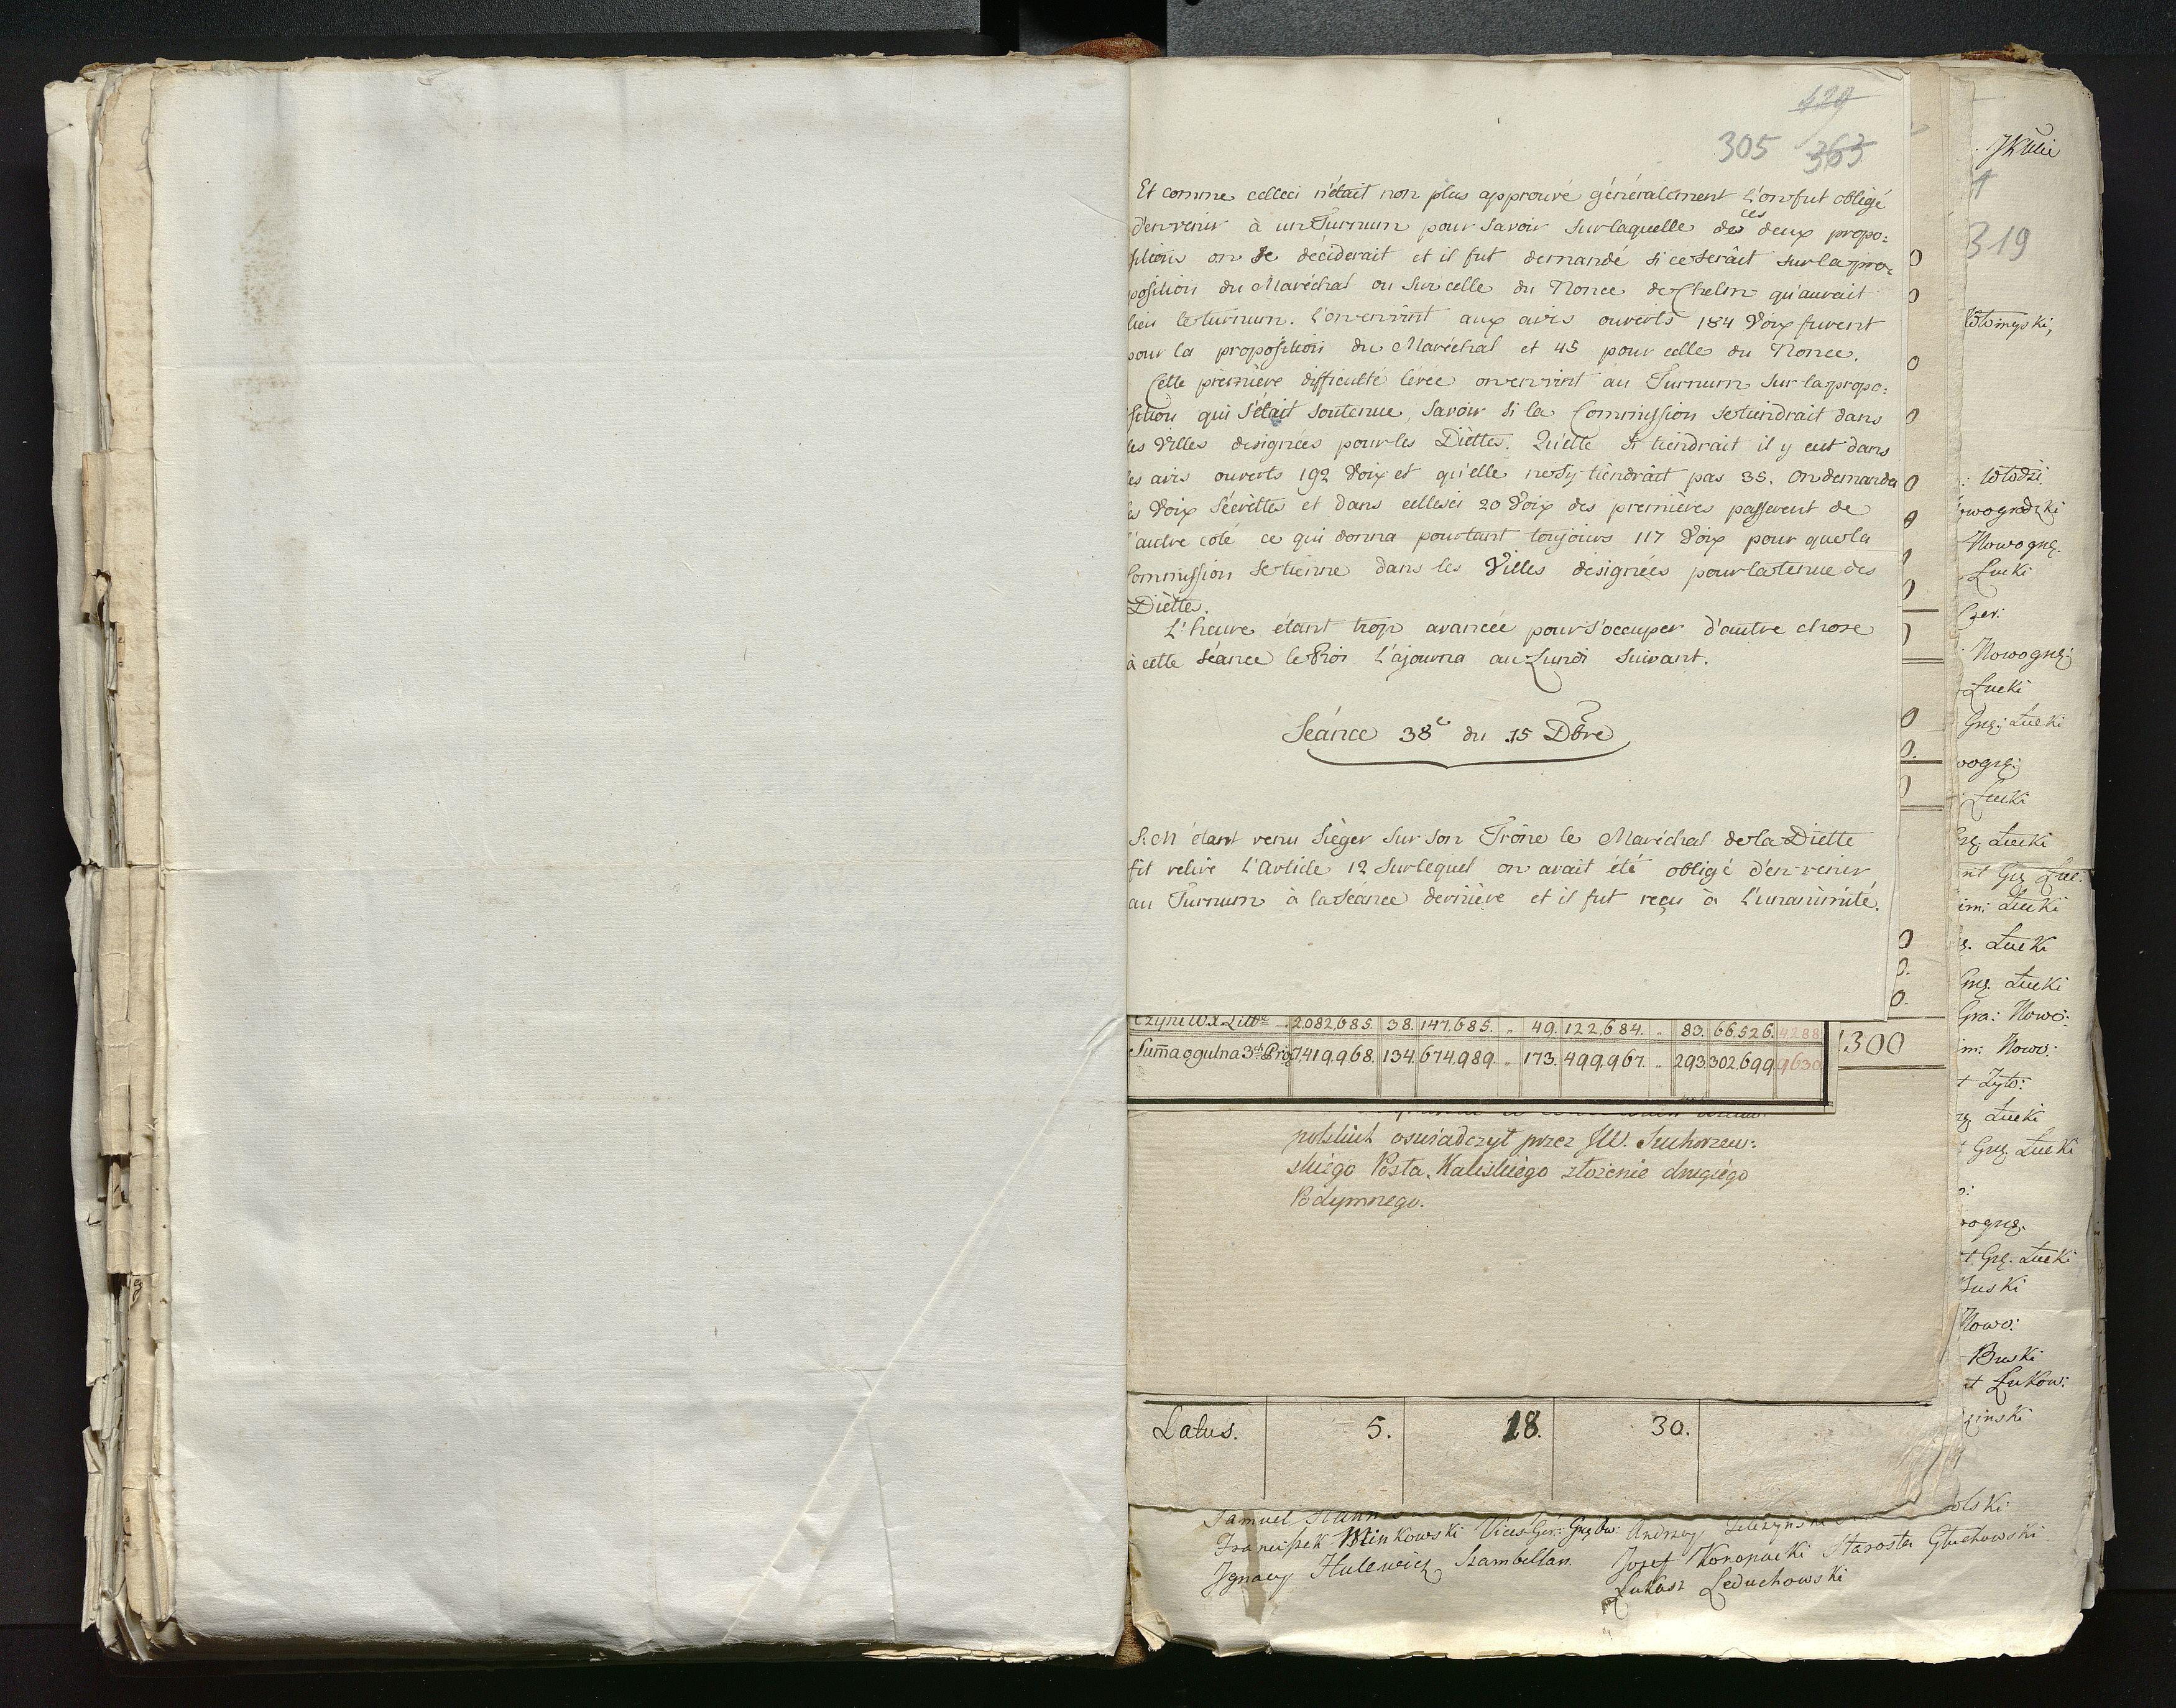 429
305 363
Et comme celleci n'était non plus approuvé généralement l'on fut obligé
d'en venir à un Turnum pour savoir sur laquelle des ces deux propo:
sitions on se déciderait et il fut demandé si ce serâit sur la pro:
position du Maréchal ou sur celle du Nonce de Chelm qu'aurait
lieu le turnum. L'on en vint aux avis ouverts 184 Voix furent
pour la proposition du Maréchal et 45 pour celle du Nonce.
Cette première difficulté levée on en vint au Turnum sur la propo:
sition qui s'était soutenue, savoir si la Commission se tiendrait dans
les Villes designées pour les Diettes. Qu'elle si tiendrait il y eut dans
les avis ouverts 192 Voix et qu'elle ne s'y tiendrait pas 35. On demanda
les Voix Sécrèttes et dans cellesci 20 Voix des premières passerent de
l'autre coté ce qui donna pourtant toujours 117 Voix pour que la
Commission se tienne dans les Villes designées pour la tenue des
Diettes.
L'heure étant trop avancée pour s'occuper d'autre chose
à cette séance le Roi l'ajourna au Lundi suivant.
Séance 38e du 15 Dbre
S. M étant venu Siéger sur son Trône le Maréchal de la Diette
fit relire l'Article 12 sur lequel on avait été obligé d'en venir
au Turnum à la Séance dernière et il fut reçu à l'unanimité.
2,082,685. 38. 147,685. „ 49. 122,684. „ 83. 66,526. 4288
Suma ogulna 3ch Pro: 7,419,968. 134. 674,989. „ 173. 499,967. „ 293. 302,699 9630
300
polskich oswiadczył przez JW. Suchorzew:
skiego Posła Kaliskiego złożenie drugiégo
Podymnego.
Latus. 5. 18. 30.
Samuel
Franciszek Minkowski Vices Ger: Grę Ow: Andrzey
Jgnacy Hulewicz Szambellan Jozef Kononacki Starosta Głuchowski
Łukasz Leduchowski
319
Włodzi
Nowogrę.
Łucki
Czer:
Nowogrę:
Łucki
Grę: Łucki
Łucki
Łucki
Łucki
Łucki
Grę. Łucki
Gra: Nowo:
Nowo:
Żyto:
Łucki
Grę Łucki
Grę. Łucki
Nowo:
Buski
Łukow: